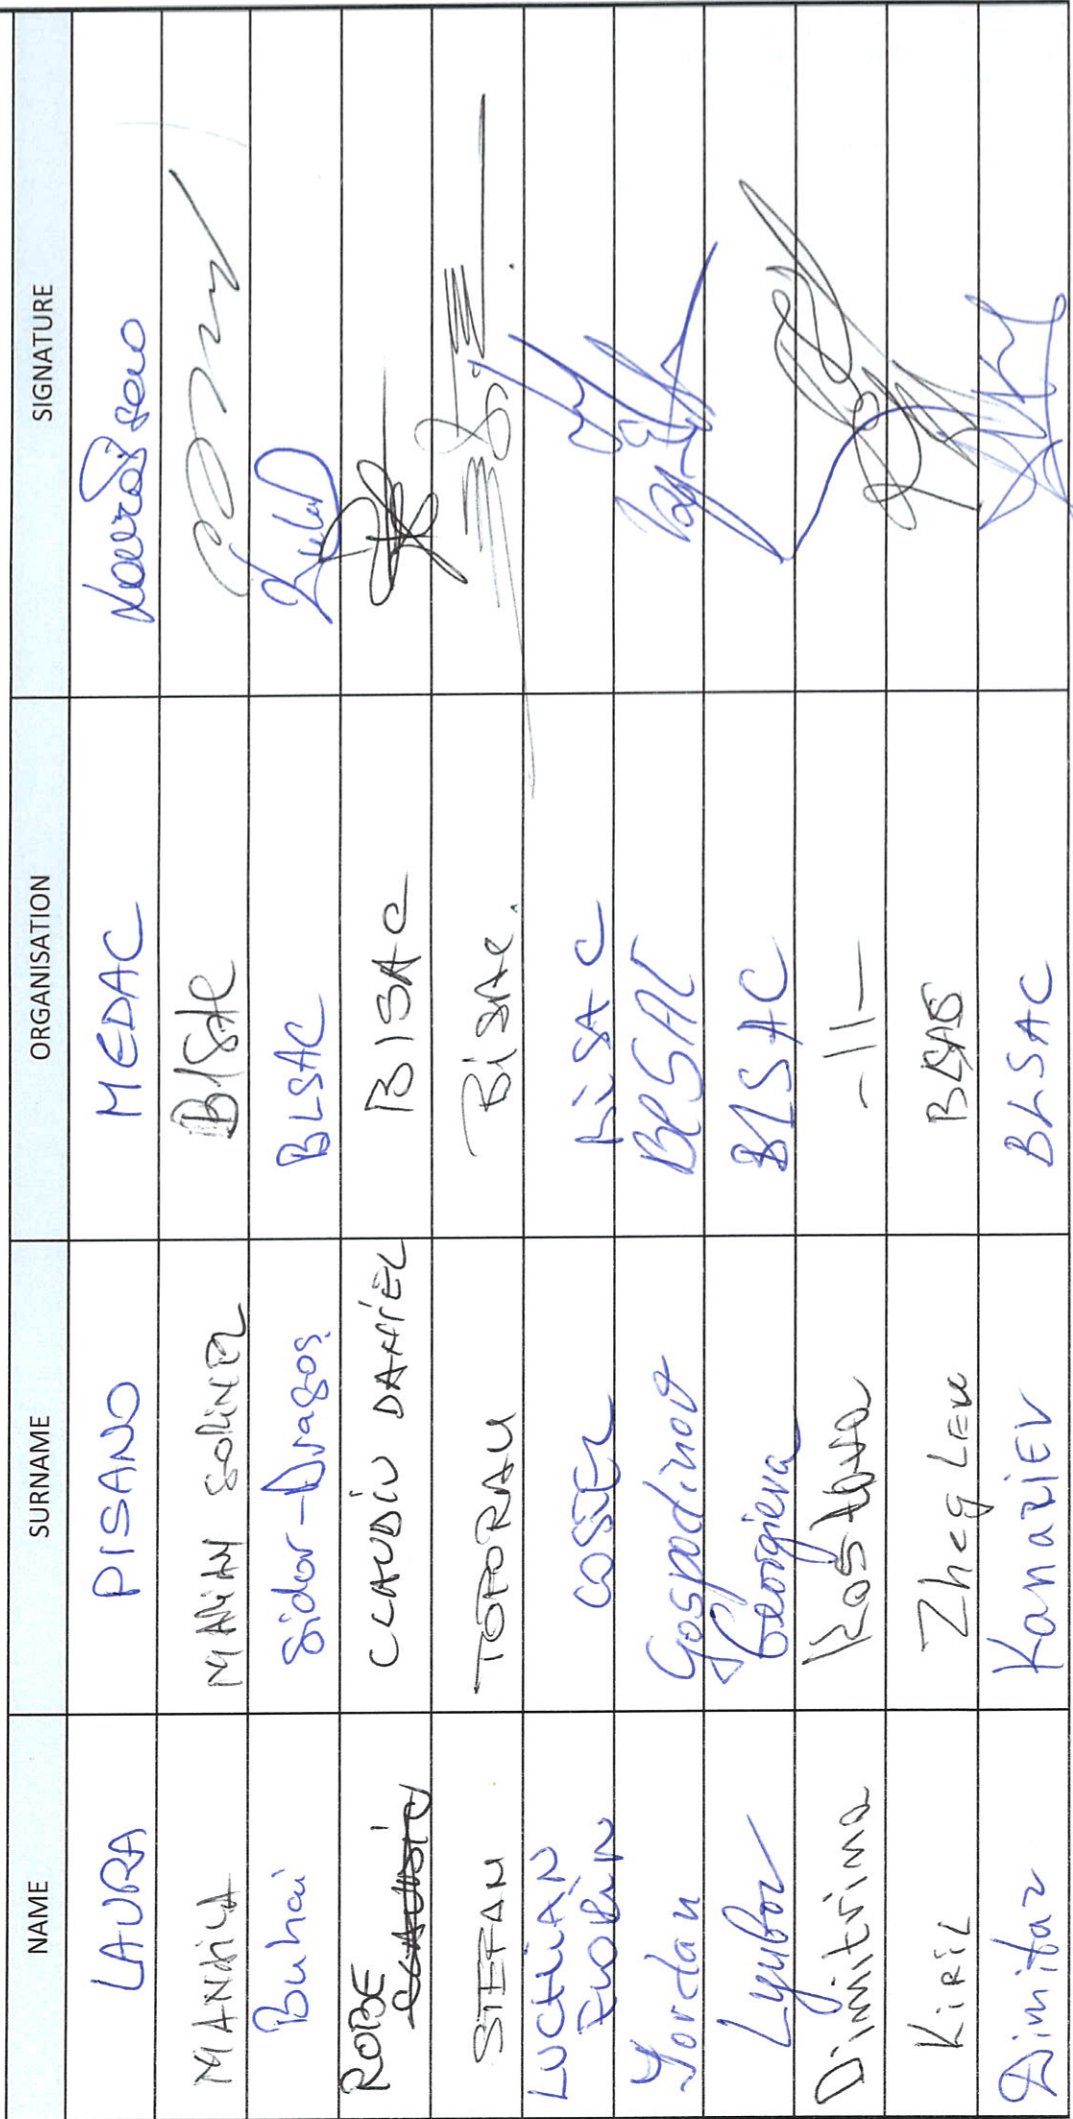 NAME SURNAME ORGANISATION SIGNATURE
LAURA PISANO MEDAC
MANDILA MARIAN SORINEL BISAC
Buhai Sidor-Dragos BLSAC
ROBE CLAUDIU CLAUDIU DANIEL BISAC
STEFAN TOPORAU BISAC.
LUCHIAN COSTEL BLSAC
FLORIN
Yordan Gospodinov BlSAC
Lyubov Georgieva BLSAC
Dimitrina Kostova -11-
KIRIL Zheg Lev BLSAC
Dimitar KanaziEV BLSAC